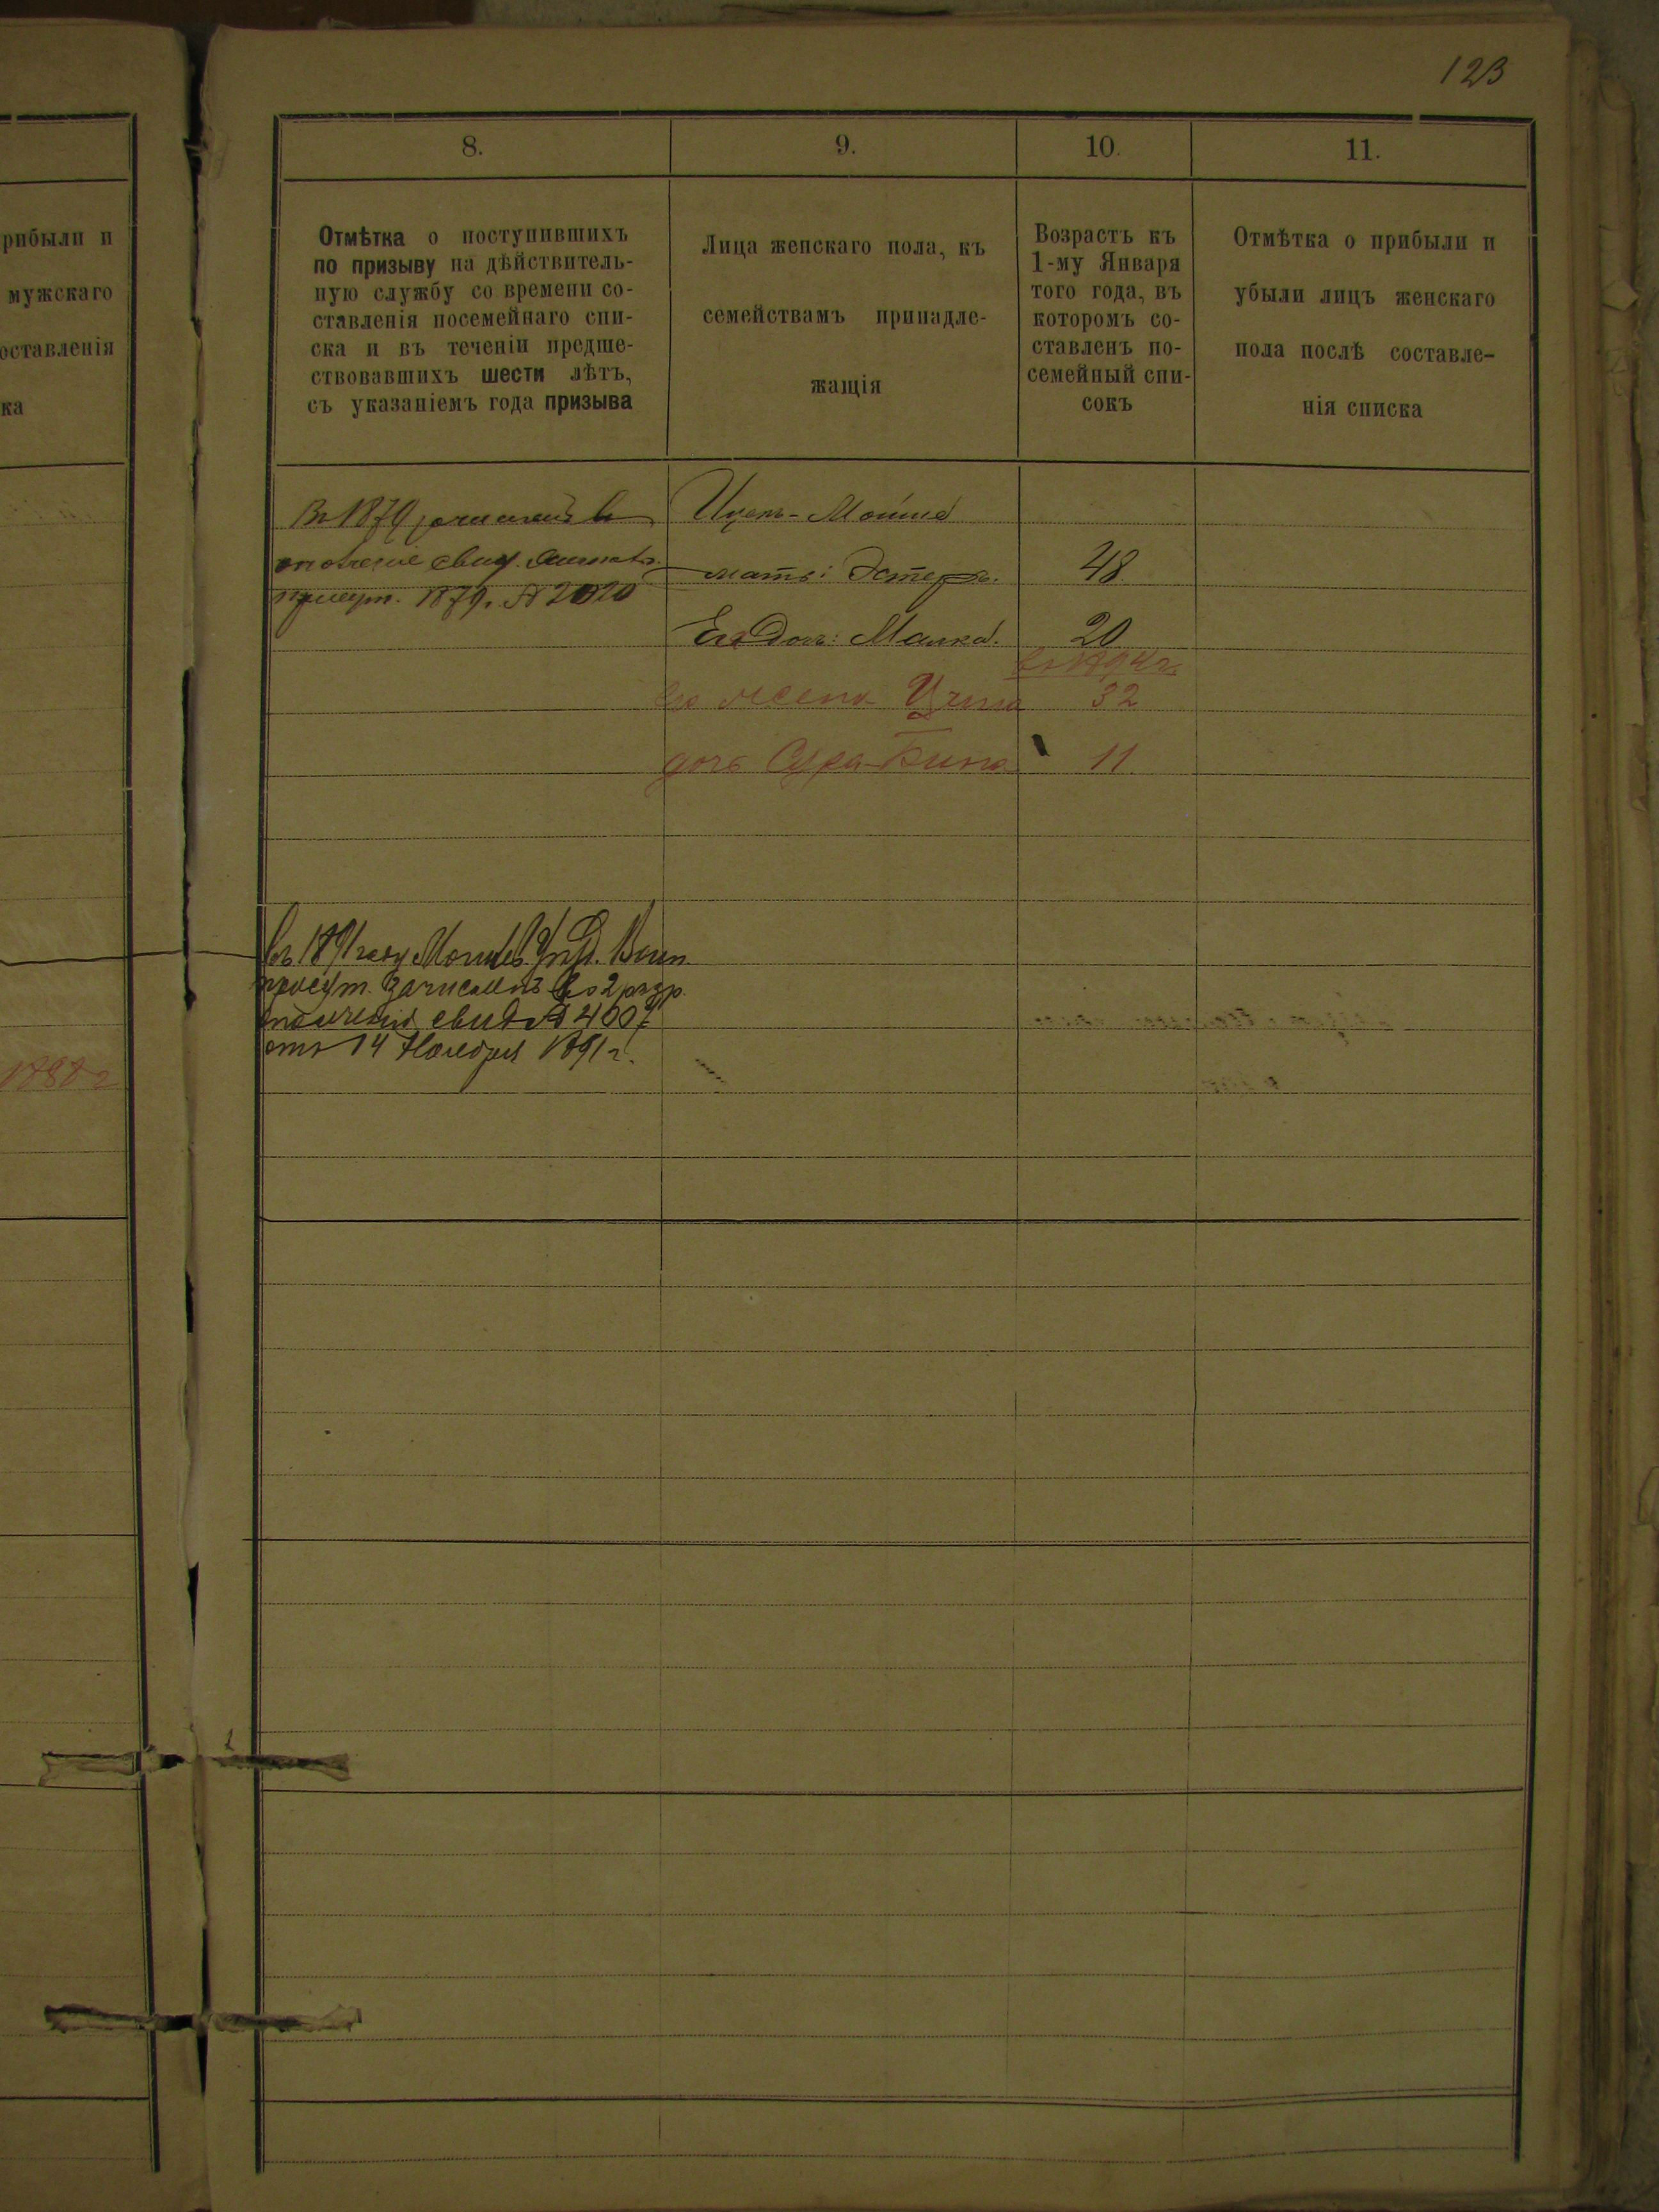 123
рибыли и
мужскаго
оставленія
ка
1888 г
8.
9.
10.
11.
Отмѣтка о поступившихъ
по призыву на дѣйствитель-
ную службу со времени со-
ставленія посемейнаго спи-
ска и въ теченіи предше-
ствовавшихъ шести лѣтъ,
съ указаніемъ года призыва
Лица женскаго пола, къ
семействамъ принадле-
жащія
Возрастъ къ
1-му Января
того года, въ
которомъ со-
ставленъ по-
семейный спи-
сокъ
Отмѣтка о прибыли и
убыли лицъ женскаго
пола послѣ составле-
нія списка
Въ 1879 зачисленъ в
ополченіе свид.
присут. 1879г. № 2020
Ицекъ-Мойше
мать: Эстеръ. 48
Ея дочь: Малка. 20
въ 1894 г.
его жена 32
дочь Сура-Бина 11
въ 1891 году Могилев. Уѣзд. Воин.
присут. зачисленъ во 2 разр.
ополченія свид №
отъ 14 Ноября 1891 г.